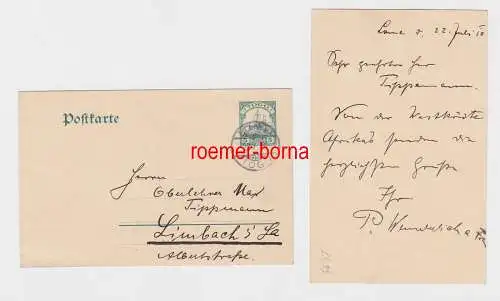 Postkarte
roemer-borna
Herrn
Oberlehrer Max
Tippmann
Limbach i/Sa
Albertstraße.
Lome d. 22. Juli 10
Sehr geehrter Herr
Tippmann.
Von der Westküste
Afrikas senden die
herzlichsten Grüße
Ihr
P. Wunderlich